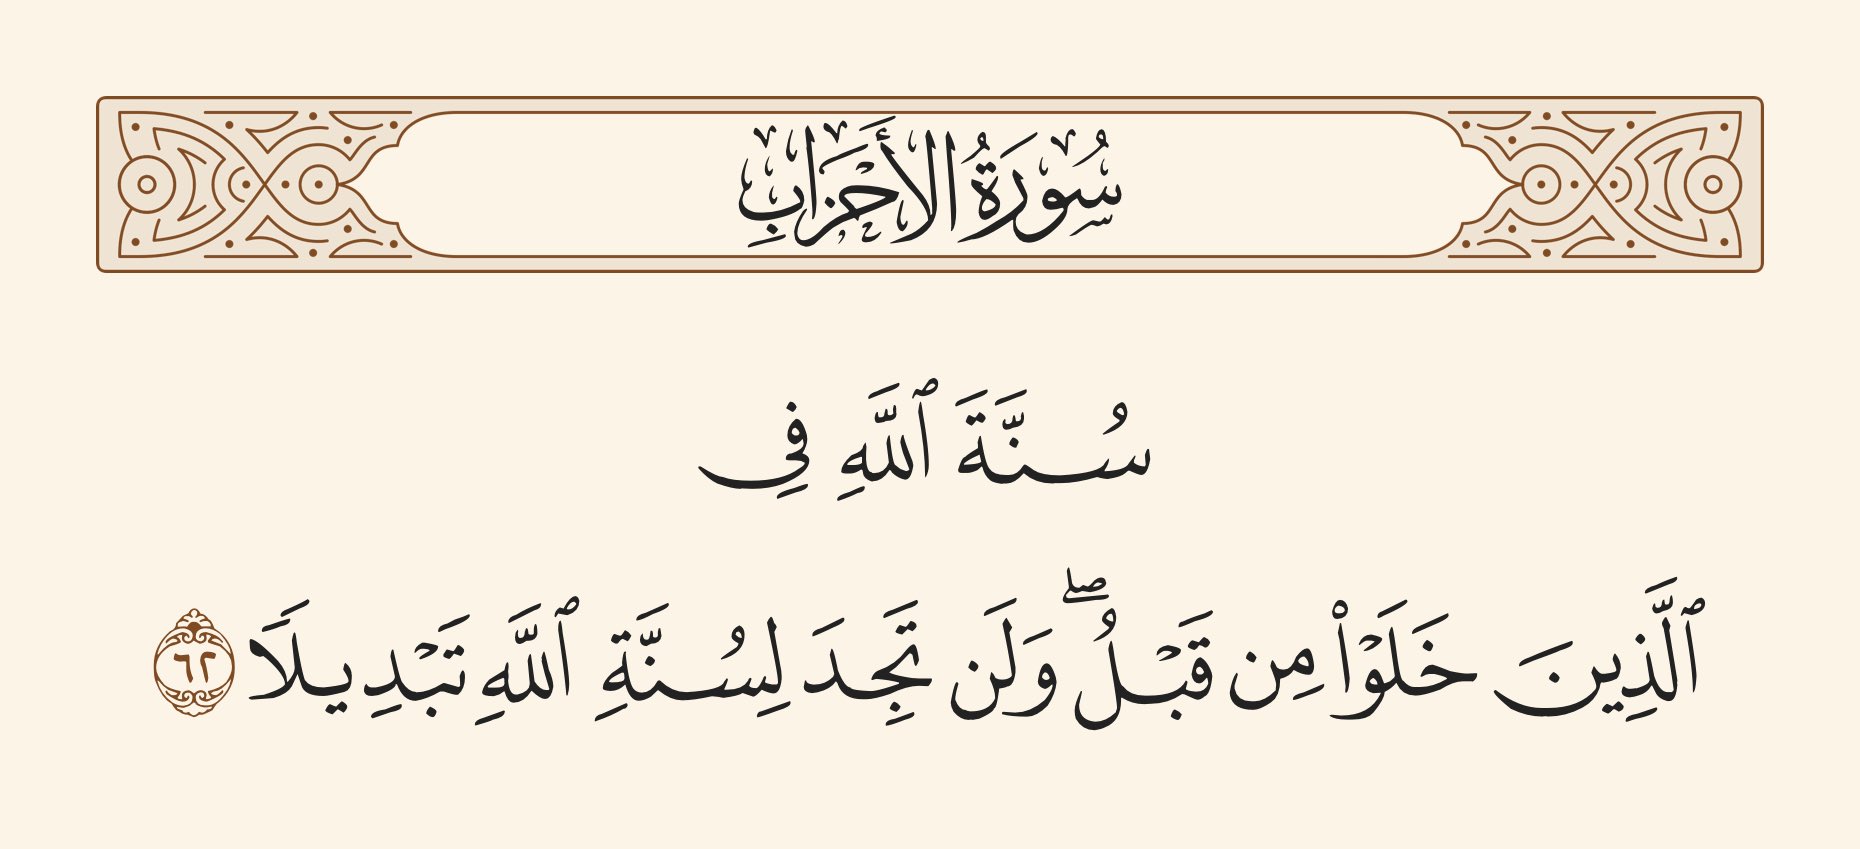 سُورَةُ الأَحْزَابِ
سُنَّةَ ٱللَّهِ فِى
ٱلَّذِينَ خَلَوْا۟ مِن قَبْلُ ۖ وَلَن تَجِدَ لِسُنَّةِ ٱللَّهِ تَبْدِيلًا ٦٢